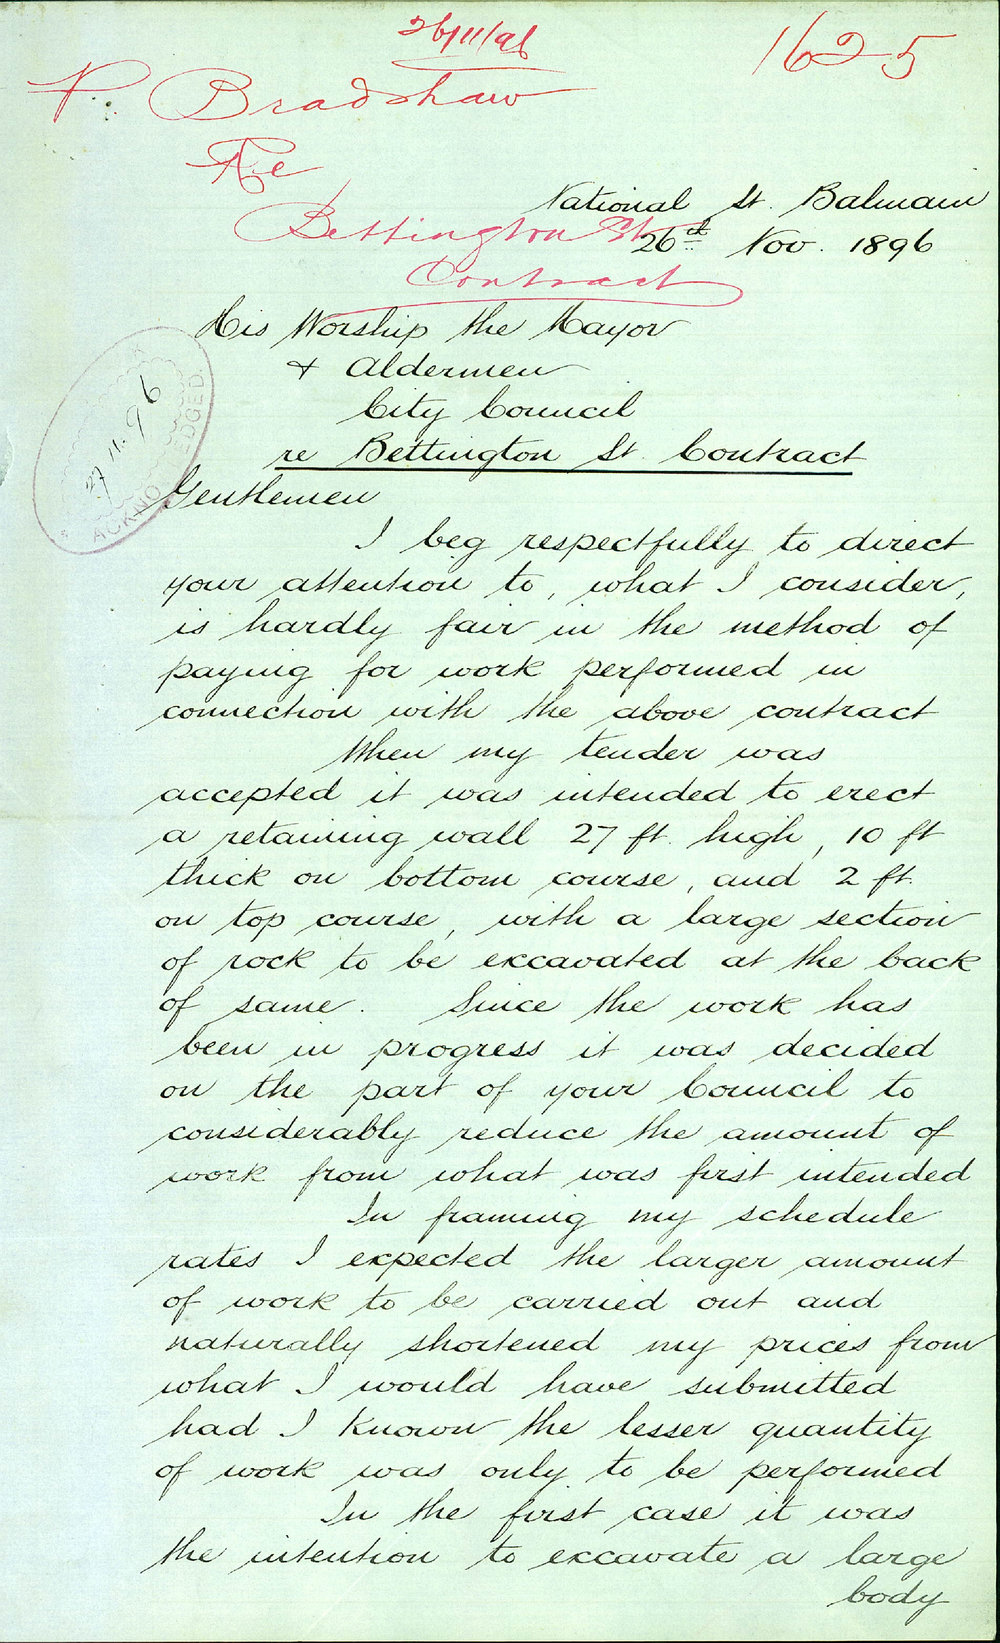 26/11/96
1625
P. Bradshaw
Re
Bettington St
Contract
National St. Balmain
26th Nov. 1896
His Worship the Mayor
& Aldermen
City Council
re Bettington St. Contract
27.11.96
ACKNOWLEDGED
Gentlemen
I beg respectfully to direct
your attention to, what I consider,
is hardly fair in the method of
paying for work performed in
connection with the above contract
When my tender was
accepted it was intended to erect
a retaining wall 27 ft. high, 10 ft
thick on bottom course, and 2 ft.
on top course, with a large section
of rock to be excavated at the back
of same. Since the work has
been in progress it was decided
on the part of your Council to
considerably reduce the amount of
work from what was first intended
In framing my schedule
rates I expected the larger amount
of work to be carried out and
naturally shortened my prices from
what I would have submitted
had I known the lesser quantity
of work was only to be performed
In the first case it was
the intention to excavate a large
body